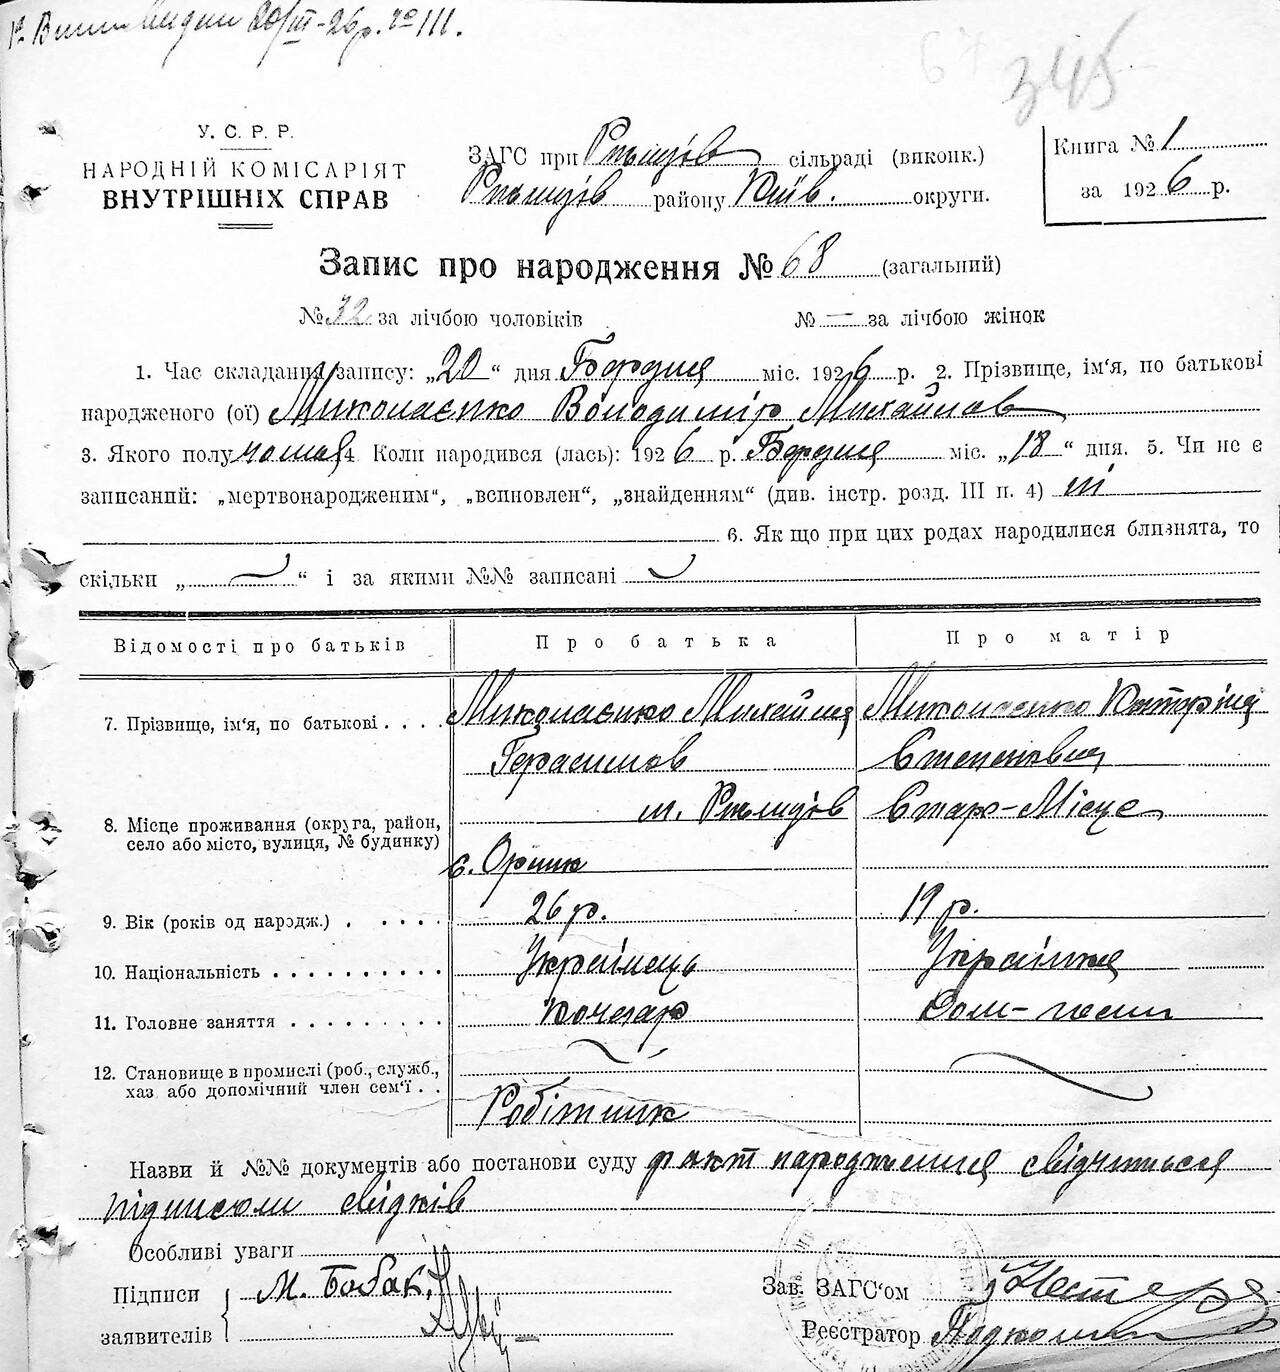 20/III-26р. № 111.
345
У. С. Р. Р.
НАРОДНІЙ КОМІСАРІЯТ
ВНУТРІШНІХ СПРАВ
ЗАГС при Ржищів сільраді (виконк.)
Ржищів району Київ. округи.
Книга № 1
за 1926 р.
Запис про народження № 68 (загальний)
№ 32 за лічбою чоловіків № — за лічбою жінок
1. Час складання запису: „20“ дня Березня міс. 1926 р. 2. Прізвище, ім'я, по батькові
народженого (ої) Миколаєнко Володимір Михайлов
3. Якого полу чолов 4. Коли народився (лась): 1926 р. Березня міс. „18“ дня. 5. Чи не є
записаний: „мертвонародженим“, „всиновлен“, „знайденням“ (див. інстр. розд. III п. 4) ні
6. Як що при цих родах народилися близнята, то
скільки „ “ і за якими №№ записані
Відомості про батьків Про батька Про матір
7. Прізвище, ім'я, по батькові . . . . Миколаєнко Михайло Миколаєнко Катеріна
Герасимов Степанівна
8. Місце проживання (округа, район, м. Ржищів Стар-Місце
село або місто, вулиця, № будинку)
9. Вік (років од народж.) . . . . . 26 р. 19 р.
10. Національність . . . . . . . . . . Українець Українка
11. Головне заняття . . . . . . . . . Кочегар Дом-
12. Становище в промислі (роб., служб.,
хаз або допомічний член сем'ї . .
Робітник
Назви й №№ документів або постанови суду факт народження свідчиться
підписом свідків
Особливі уваги
Підписи М. Бобак.
заявителів
Зав. ЗАГС'ом
Реєстратор